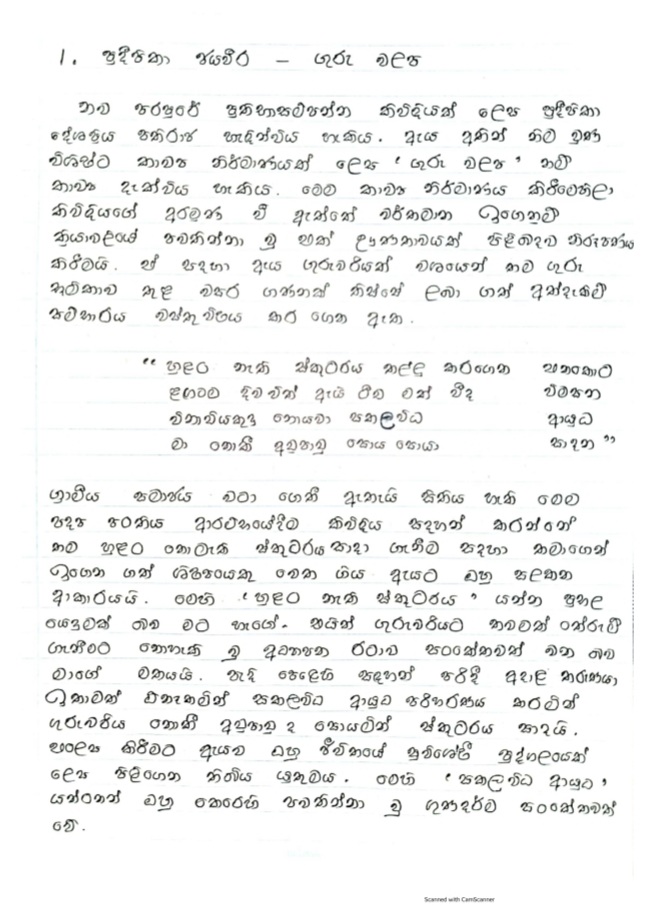 1. ප්‍රදීපිකා ජයවීර – ගුරු වලප
නව පරපුරේ ප්‍රතිභාසම්පන්න කිවිඳියක් ලෙස ප්‍රදීපිකා
දේශප්‍රිය පතිරාජ හැඳින්විය හැකිය. ඇය අතින් බිම වුණ
විශිෂ්ට කාව්‍ය නිර්මාණයක් ලෙස ' ගුරු වලප ' නම්
කාව්‍ය දැක්විය හැකිය. මෙම කාව්‍ය නිර්මාණය කිරීමෙහිලා
කිවිඳියගේ අරමුණ වී ඇත්තේ වර්තමාන ඉගෙනුම්
ක්‍රියාවලියේ පවතින්නා වූ භක් ඌණතාවයක් පිළිබඳව නිරූපණය
කිරීමයි. ඒ සඳහා ඇය ගුරුවරියක් වශයෙන් තම ගුරු
භූමිකාව තුළ වසර ගණනක් තිස්සේ ලබා ගත් අත්දැකීම්
සම්භාරය වස්තු විෂය කර ගෙන ඇත.
" හුළං නැති ස්කූටරය තල්ලු කරගෙන එනකොට
ළඟටම දිව විත් ඇයි ටීච මක් වීද විමසන
විභාවියකුදු නොයවා සකලවිධ ආයුධ
මා නොකී අඩුපාඩු සොය සොයා සාදන "
ග්‍රාමීය සමාජය වටා ගෙතී ඇතැයි සිතිය හැකි මෙම
පද්‍ය පංතිය ආරම්භයේදීම කිවිඳිය සඳහන් කරන්නේ
තම හුළං නොමැති ස්කූටරය සාදා ගැනීම සඳහා තමාගෙන්
ඉගෙන ගත් ශිෂ්‍යයෙකු වෙත ගිය ඇයට ඔහු සලකන
ආකාරයයි. මෙහි ' හුළං නැති ස්කූටරය ' යන්න පුහල
යෙදුමක් බව මට හැගේ. භයින් ගුරුවරියට තවමත් තේරුම්
ගැනීමට නොහැකි වූ අධ්‍යාපන රටාව සංකේතවත් වන බව
මාගේ මතයයි. පැදි පෙළෙහි සඳහන් පරිදි අදාළ තරුණයා
ඉතාමත් ඕනෑකමින් සකලවිධ ආයුධ පරිහරණය කරමින්
ගුරුවරිය නොකී අඩුපාඩු ද සොයමින් ස්කූටරය සාදයි.
භලෙස කිරීමට ඇයව ඔහු ජීවිතයේ සුවිශේෂී පුද්ගලයෙක්
ලෙස පිළිගෙන තිබිය යුතුමය. මෙහි ' සකල විධ ආයුධ '
යන්නෙන් ඔහු කෙරෙහි පවතින්නා වූ ගුණදර්ම සංකේතවත්
වේ.
Scanned with CamScanner